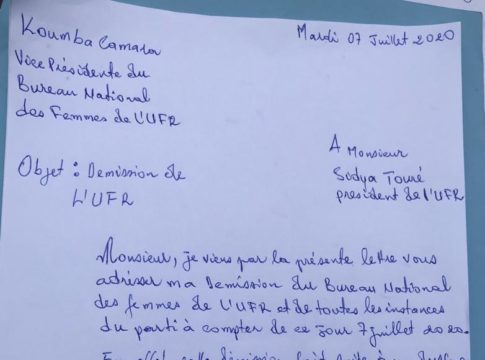 Koumba Camara
Mardi 07 Juillet 2020
Vice Présidente du
Bureau National
des Femmes de L'UFR
A Monsieur
Sidya Touré
president de L'UFR
Objet : Demission de
L'UFR
Monsieur, je viens par la présente lettre vous
adresser ma Demission du Bureau National
des femmes de L'UFR et de toutes les instances
du parti à compter de ce jour 7 juillet 2020.
En effet cette démission fait suite à